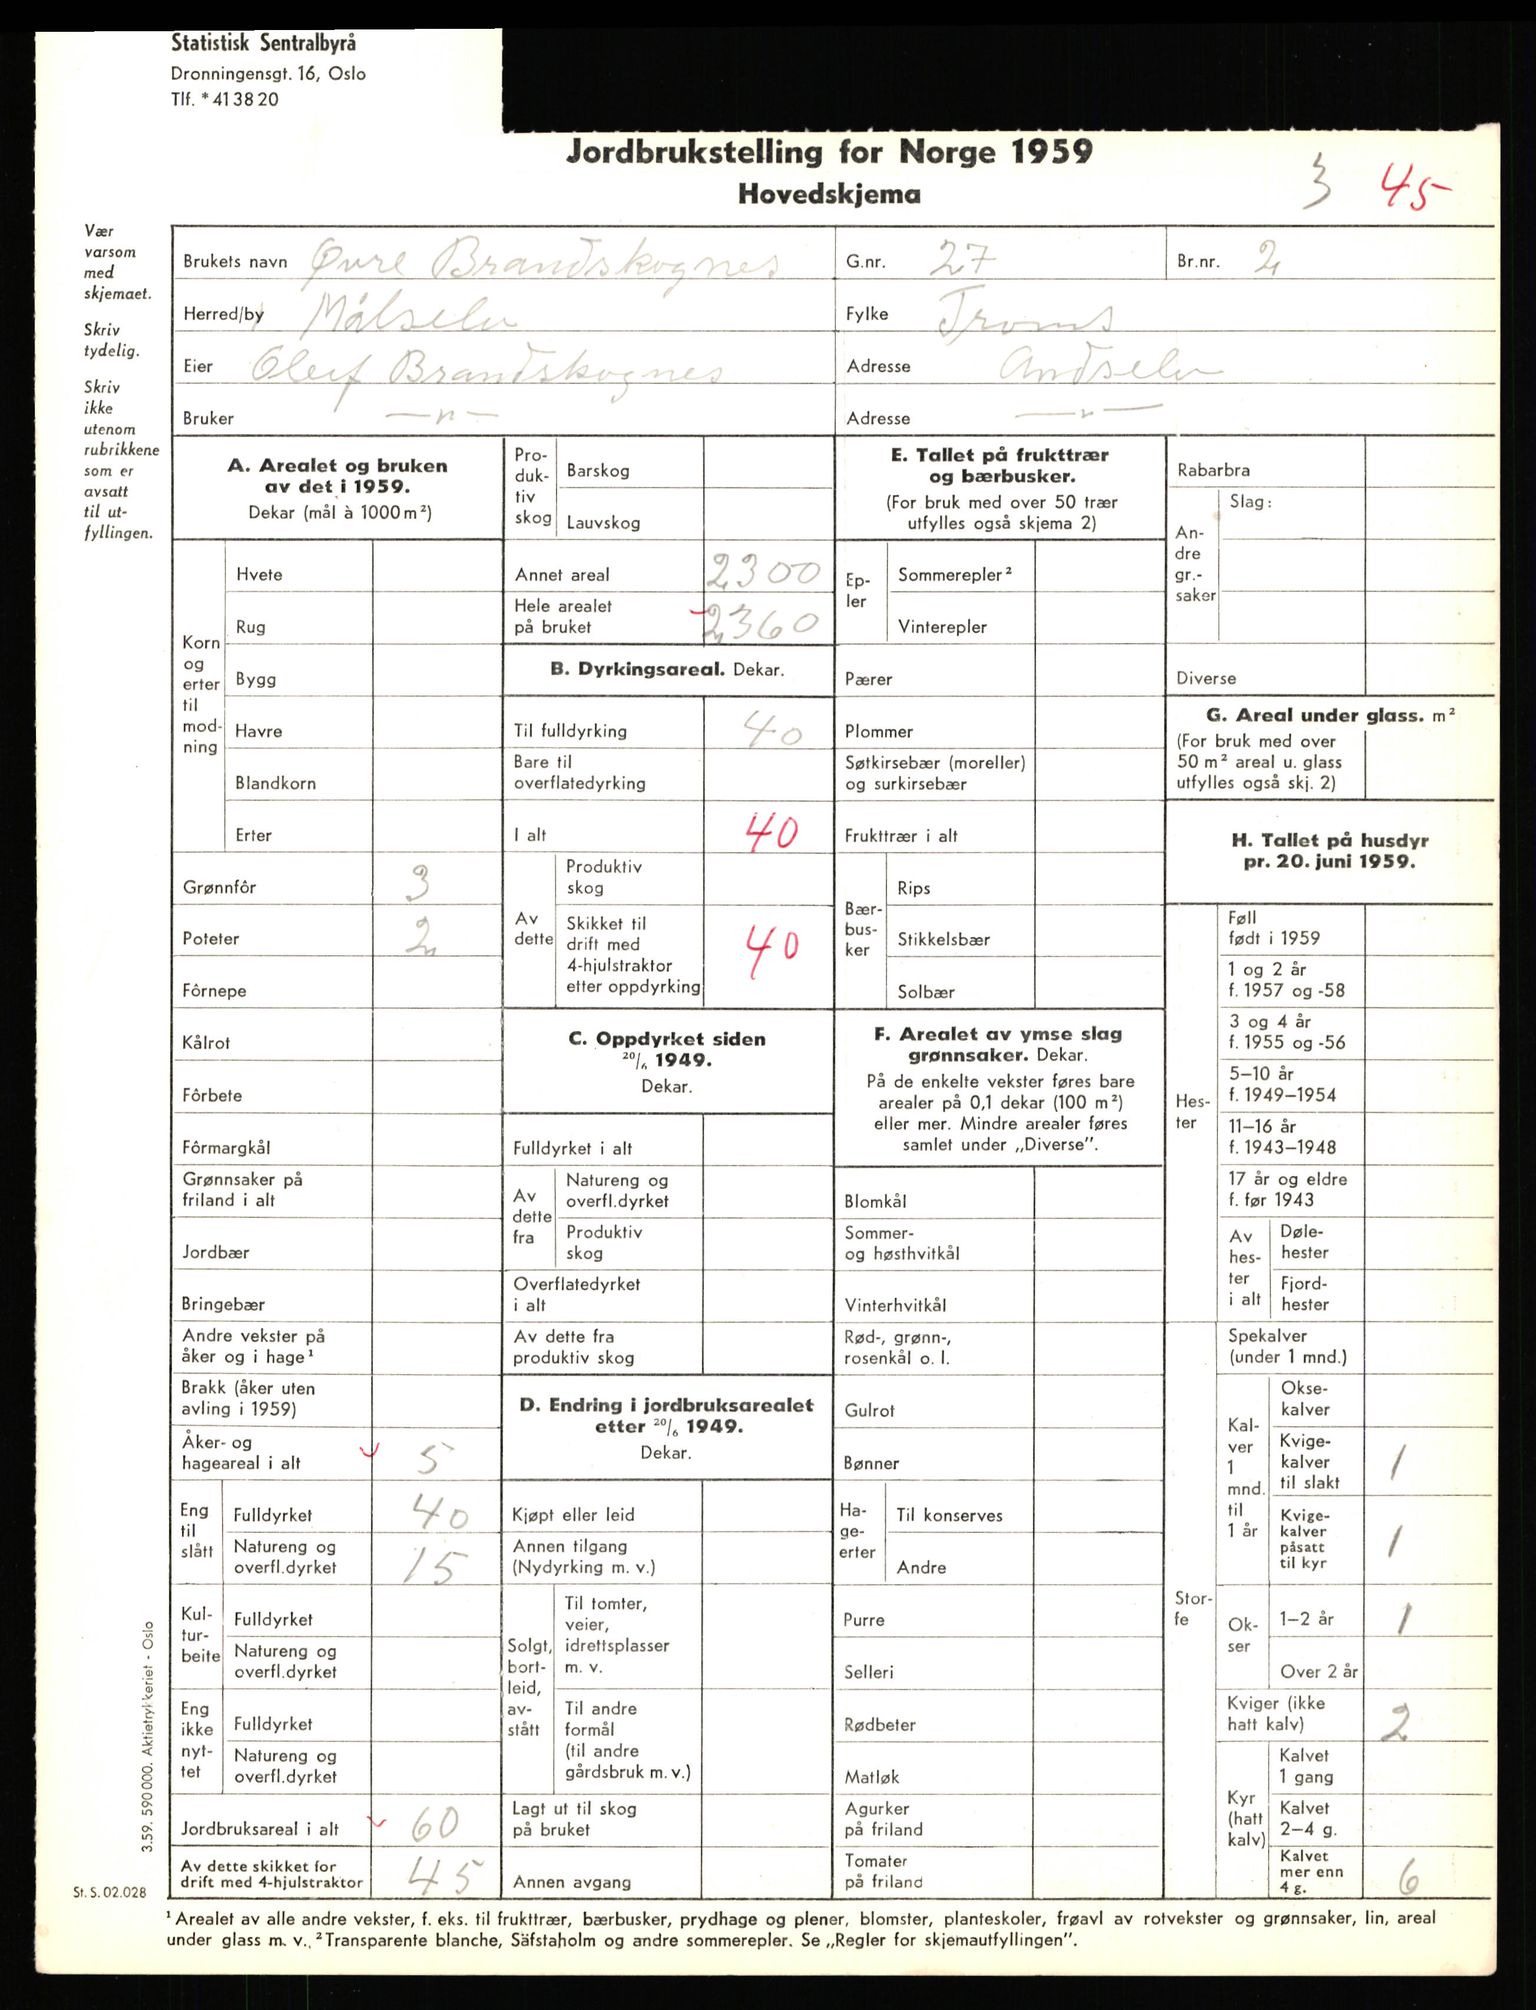 Statistisk Sentralbyrå
Dronningensgt. 16, Oslo
Tlf. * 41 38 20
Jordbrukstelling for Norge 1959
Hovedskjema
3 45
Vær
varsom
med
skjemaet.
Skriv
tydelig.
Skriv
ikke
utenom
rubrikkene
som er
avsatt
til ut-
fyllingen.
Brukets navn Øvre Brandskognes G.nr. 27 Br.nr. 2
Herred/by Målselv Fylke Troms
Eier Oleif Brandskognes Adresse Andselv
Bruker —„— Adresse —„—
A. Arealet og bruken
av det i 1959.
Dekar (mål à 1000 m²)
Korn
og
erter
til
mod-
ning
Hvete
Rug
Bygg
Havre
Blandkorn
Erter
Grønnfôr 3
Poteter 2
Fôrnepe
Kålrot
Fôrbete
Fôrmargkål
Grønnsaker på
friland i alt
Jordbær
Bringebær
Andre vekster på
åker og i hage¹
Brakk (åker uten
avling i 1959)
Åker- og
hageareal i alt 5
Eng
til
slått
Fulldyrket 40
Natureng og
overfl.dyrket 15
Kul-
tur-
beite
Fulldyrket
Natureng og
overfl.dyrket
Eng
ikke
nyt-
tet
Fulldyrket
Natureng og
overfl.dyrket
Jordbruksareal i alt 60
Av dette skikket for
drift med 4-hjulstraktor 45
Pro-
duk-
tiv
skog
Barskog
Lauvskog
Annet areal 2300
Hele arealet
på bruket 2360
B. Dyrkingsareal. Dekar.
Til fulldyrking 40
Bare til
overflatedyrking
I alt 40
Av
dette
Produktiv
skog
Skikket til
drift med
4-hjulstraktor
etter oppdyrking 40
C. Oppdyrket siden
20/6 1949.
Dekar.
Fulldyrket i alt
Av
dette
fra
Natureng og
overfl.dyrket
Produktiv
skog
Overflatedyrket
i alt
Av dette fra
produktiv skog
D. Endring i jordbruksarealet
etter 20/6 1949.
Dekar.
Kjøpt eller leid
Annen tilgang
(Nydyrking m. v.)
Solgt,
bort-
leid,
av-
stått
Til tomter,
veier,
idrettsplasser
m. v.
Til andre
formål
(til andre
gårdsbruk m. v.)
Lagt ut til skog
på bruket
Annen avgang
E. Tallet på frukttrær
og bærbusker.
(For bruk med over 50 trær
utfylles også skjema 2)
Ep-
ler
Sommerepler²
Vinterepler
Pærer
Plommer
Søtkirsebær (moreller)
og surkirsebær
Frukttrær i alt
Bær-
bus-
ker
Rips
Stikkelsbær
Solbær
F. Arealet av ymse slag
grønnsaker. Dekar.
På de enkelte vekster føres bare
arealer på 0,1 dekar (100 m²)
eller mer. Mindre arealer føres
samlet under „Diverse”.
Blomkål
Sommer-
og høsthvitkål
Vinterhvitkål
Rød-, grønn-,
rosenkål o. l.
Gulrot
Bønner
Ha-
ge-
erter
Til konserves
Andre
Purre
Selleri
Rødbeter
Matløk
Agurker
på friland
Tomater
på friland
Rabarbra
An-
dre
gr.-
saker
Slag:
Diverse
G. Areal under glass. m²
(For bruk med over
50 m² areal u. glass
utfylles også skj. 2)
H. Tallet på husdyr
pr. 20. juni 1959.
Hes-
ter
Føll
født i 1959
1 og 2 år
f. 1957 og -58
3 og 4 år
f. 1955 og -56
5–10 år
f. 1949–1954
11–16 år
f. 1943–1948
17 år og eldre
f. før 1943
Av
hes-
ter
i alt
Døle-
hester
Fjord-
hester
Stor-
fe
Spekalver
(under 1 mnd.)
Kal-
ver
1
mnd.
til
1 år
Okse-
kalver
Kvige-
kalver
til slakt 1
Kvige-
kalver
påsatt
til kyr 1
Ok-
ser
1–2 år 1
Over 2 år
Kviger (ikke
hatt kalv) 2
Kyr
(hatt
kalv)
Kalvet
1 gang
Kalvet
2–4 g.
Kalvet
mer enn
4 g. 6
3.59. 590 000. Aktietrykkeriet - Oslo
St. S. 02.028
¹ Arealet av alle andre vekster, f. eks. til frukttrær, bærbusker, prydhage og plener, blomster, planteskoler, frøavl av rotvekster og grønnsaker, lin, areal
under glass m. v., ² Transparente blanche, Säfstaholm og andre sommerepler. Se „Regler for skjemautfyllingen”.